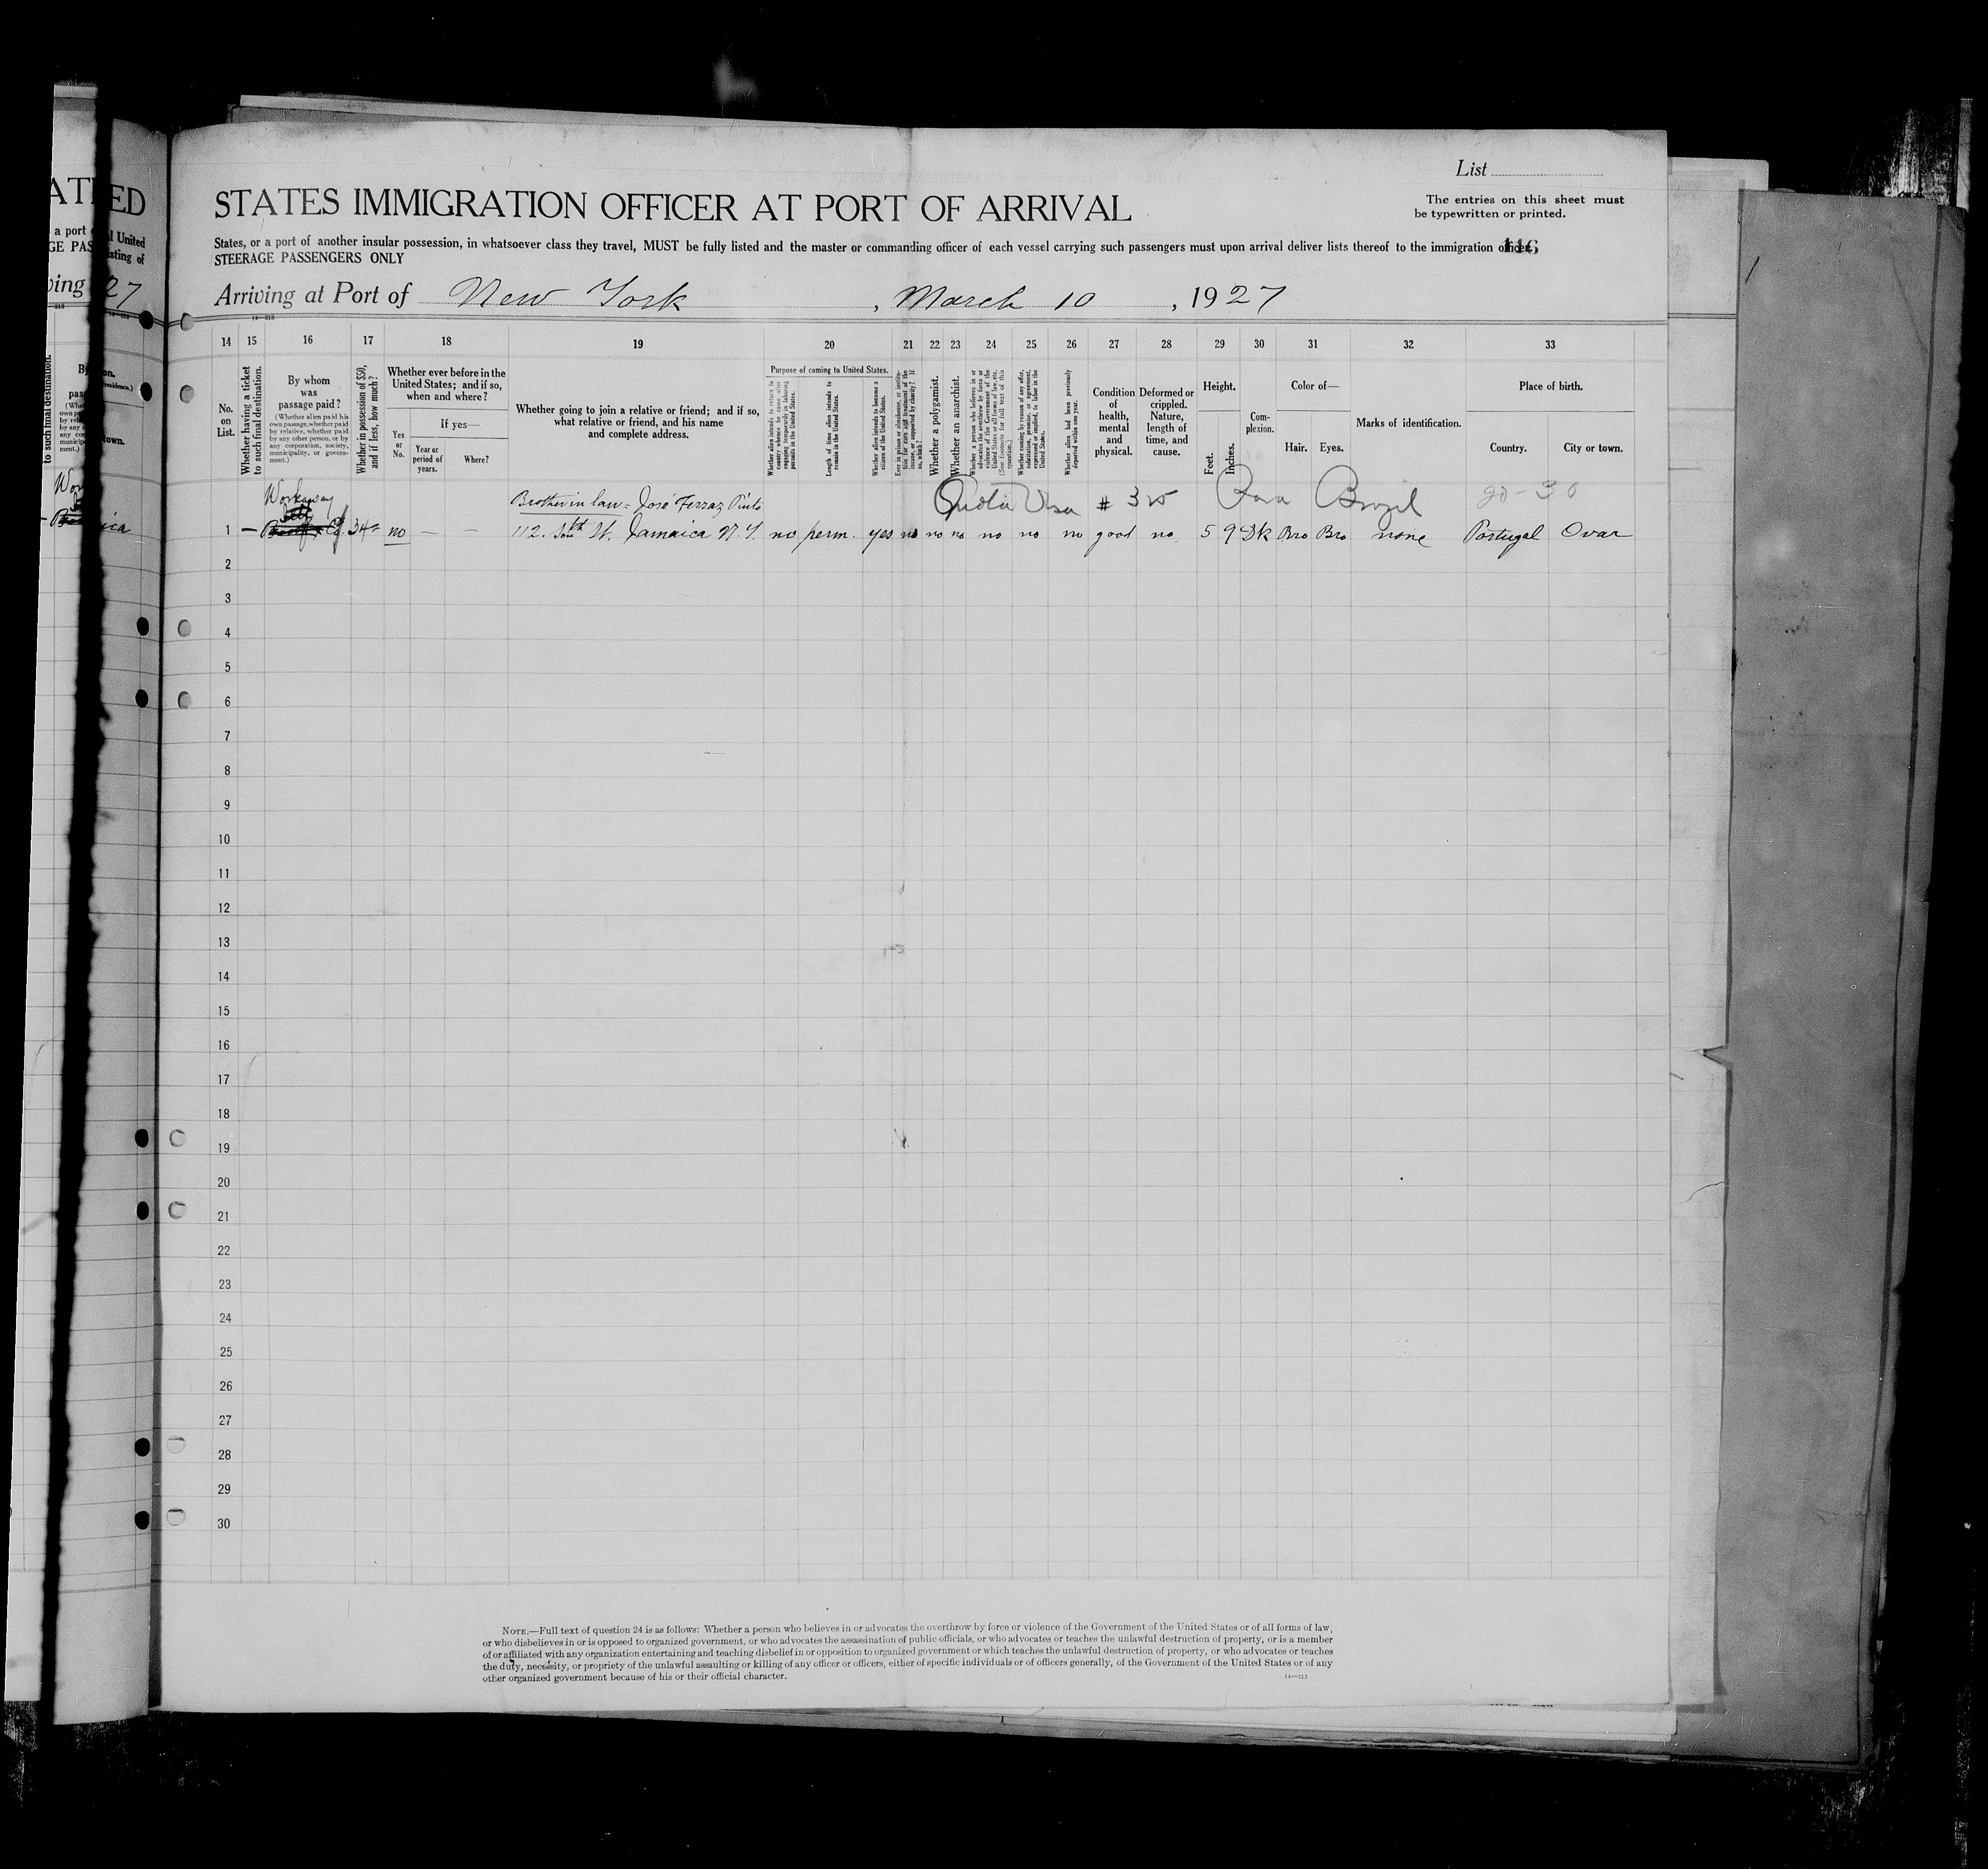 List
The entries on this sheet must
be typewritten or printed.
STATES IMMIGRATION OFFICER AT PORT OF ARRIVAL
States, or a port of another insular possession, in whatsoever class they travel, MUST be fully listed and the master or commanding officer of each vessel carrying such passengers must upon arrival deliver lists thereof to the immigration officer.
STEERAGE PASSENGERS ONLY
Arriving at Port of New York, March 10, 1927
14 15 16 17 18 19 20 21 22 23 24 25 26 27 28 29 30 31 32 33
No. on List.
Whether having a ticket to such final destination.
By whom was passage paid?
(Whether alien paid his own passage, whether paid by relative, whether paid by any other person, or by any corporation, society, municipality, or government.)
Whether in possession of $50, and if less, how much?
Whether ever before in the United States; and if so, when and where?
Yes or No.
If yes—
Year or period of years.
Where?
Whether going to join a relative or friend; and if so, what relative or friend, and his name and complete address.
Purpose of coming to United States.
Whether alien intends to return to country whence he came after engaging temporarily in laboring pursuits in the United States.
Length of time alien intends to remain in the United States.
Whether alien intends to become a citizen of the United States.
Whether a polygamist.
Whether an anarchist.
Whether coming by reason of any offer, solicitation, promise, or agreement, expressed or implied, to labor in the United States.
Whether alien had been previously deported within one year.
Condition of health, mental and physical.
Deformed or crippled. Nature, length of time, and cause.
Height.
Feet. Inches.
Complexion.
Color of—
Hair. Eyes.
Marks of identification.
Place of birth.
Country. City or town.
Workaway
Brother in law = José Ferraz Pinto
Quota Visa # 325 Para Brazil 20-30
1 — Co 34 no — — 112. South St. Jamaica N.Y. no perm. yes no no no no no no good no 5 9 Dk Bro Bro none Portugal Ovar
2
3
4
5
6
7
8
9
10
11
12
13
14
15
16
17
18
19
20
21
22
23
24
25
26
27
28
29
30
NOTE.—Full text of question 24 is as follows: Whether a person who believes in or advocates the overthrow by force or violence of the Government of the United States or of all forms of law,
or who disbelieves in or is opposed to organized government, or who advocates the assassination of public officials, or who advocates or teaches the unlawful destruction of property, or is a member
of or affiliated with any organization entertaining and teaching disbelief in or opposition to organized government or which teaches the unlawful destruction of property, or who advocates or teaches
the duty, necessity, or propriety of the unlawful assaulting or killing of any officer or officers, either of specific individuals or of officers generally, of the Government of the United States or of any
other organized government because of his or their official character.
14—213